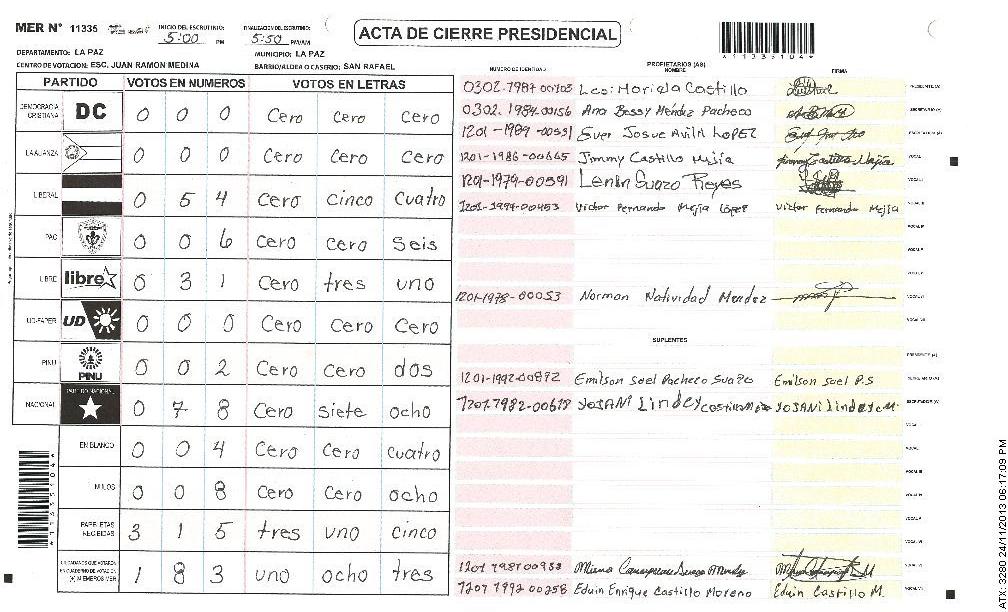 MER N° 11335
INICIO DEL ESCRUTINIO:
5:00 PM
FINALIZACION DEL ESCRUTINIO:
5:50 PM/AM
ACTA DE CIERRE PRESIDENCIAL
*11335104*
DEPARTAMENTO: LA PAZ
MUNICIPIO: LA PAZ
CENTRO DE VOTACION: ESC. JUAN RAMON MEDINA
BARRIO/ALDEA O CASERIO: SAN RAFAEL
PARTIDO VOTOS EN NUMEROS VOTOS EN LETRAS
DEMOCRACIA CRISTIANA DC 0 0 0 Cero Cero Cero
LA ALIANZA 0 0 0 Cero Cero Cero
LIBERAL 0 5 4 Cero Cinco Cuatro
PAC 0 0 6 Cero Cero Seis
LIBRE libre 0 3 1 Cero tres uno
UD-FAPER UD 0 0 0 Cero Cero Cero
PINU PINU 0 0 2 Cero Cero dos
NACIONAL PARTIDO NACIONAL 0 7 8 Cero siete ocho
EN BLANCO 0 0 4 Cero Cero Cuatro
NULOS 0 0 8 Cero Cero ocho
PAPELETAS RECIBIDAS 3 1 5 tres uno cinco
CIUDADANOS QUE VOTARON EN CUADERNO DE VOTACION (+) MIEMBROS MER 1 8 3 uno ocho tres
NUMERO DE IDENTIDAD PROPIETARIOS (AS) NOMBRE FIRMA
0302-1987-00103 Lesi Mariela Castillo PRESIDENTE (A)
0302-1984-00156 Ana Bessy Méndez Pacheco SECRETARIO (A)
1201-1989-00531 Ever Josue Avila LOPEZ ESCRUTADOR (A)
1201-1986-00665 Jimmy Castillo Mejía Jimmy Castillo Mejía VOCAL I
1201-1979-00591 Lenin Suazo Reyes VOCAL II
1201-1994-00453 Victor Fernando Mejia López Victor Fernando Mejia VOCAL III
1201-1978-00053 Norman Natividad Mendez
SUPLENTES
PRESIDENTE (A)
1201-1992-00892 Emilson Soel Pacheco Suazo Emilson Soel P.S SECRETARIO (A)
1201-1982-00678 YOSANI Lindey Castillo YOSANI Lindey C M. ESCRUTADOR (A)
1201 1987 00933
1201 1992 00258 Eduin Enrique Castillo Moreno Eduin Castillo M.
ATX-3280 24/11/2013 06:17:09 PM